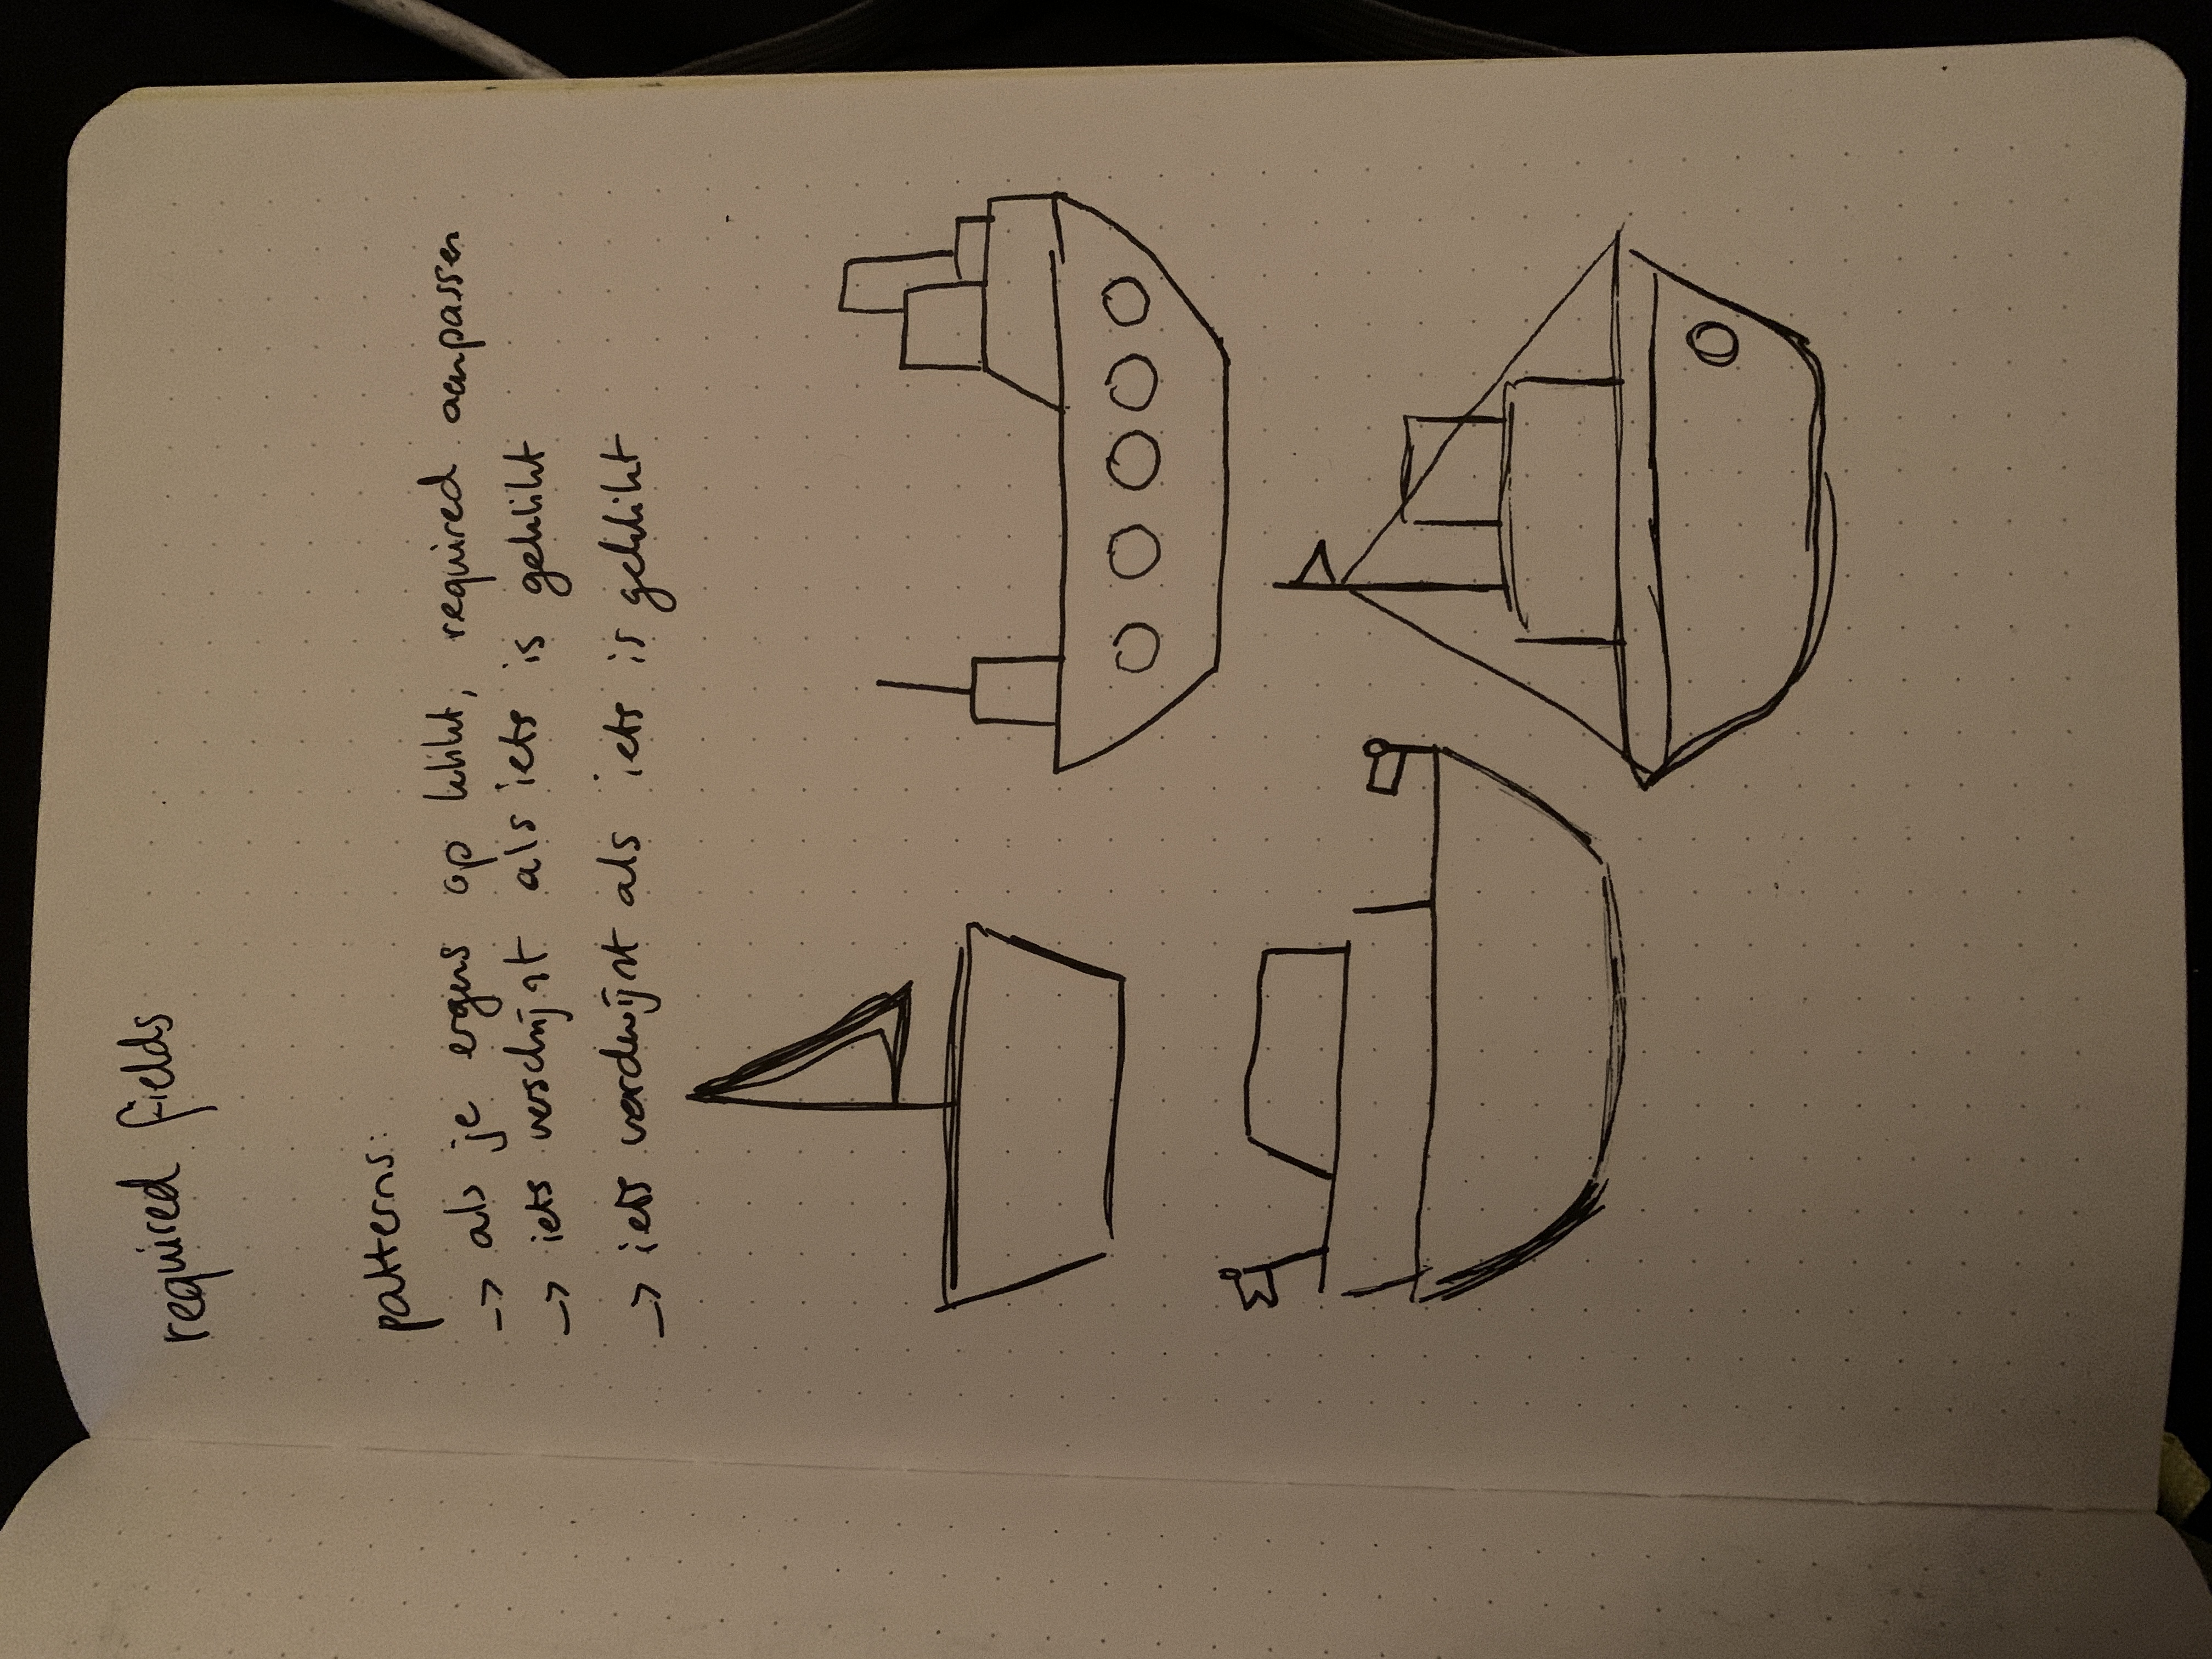 required fields
patterns:
-> als je ergens op klikt, required aanpassen
-> iets verschijnt als iets is geklikt
-> iets verdwijnt als iets is geklikt